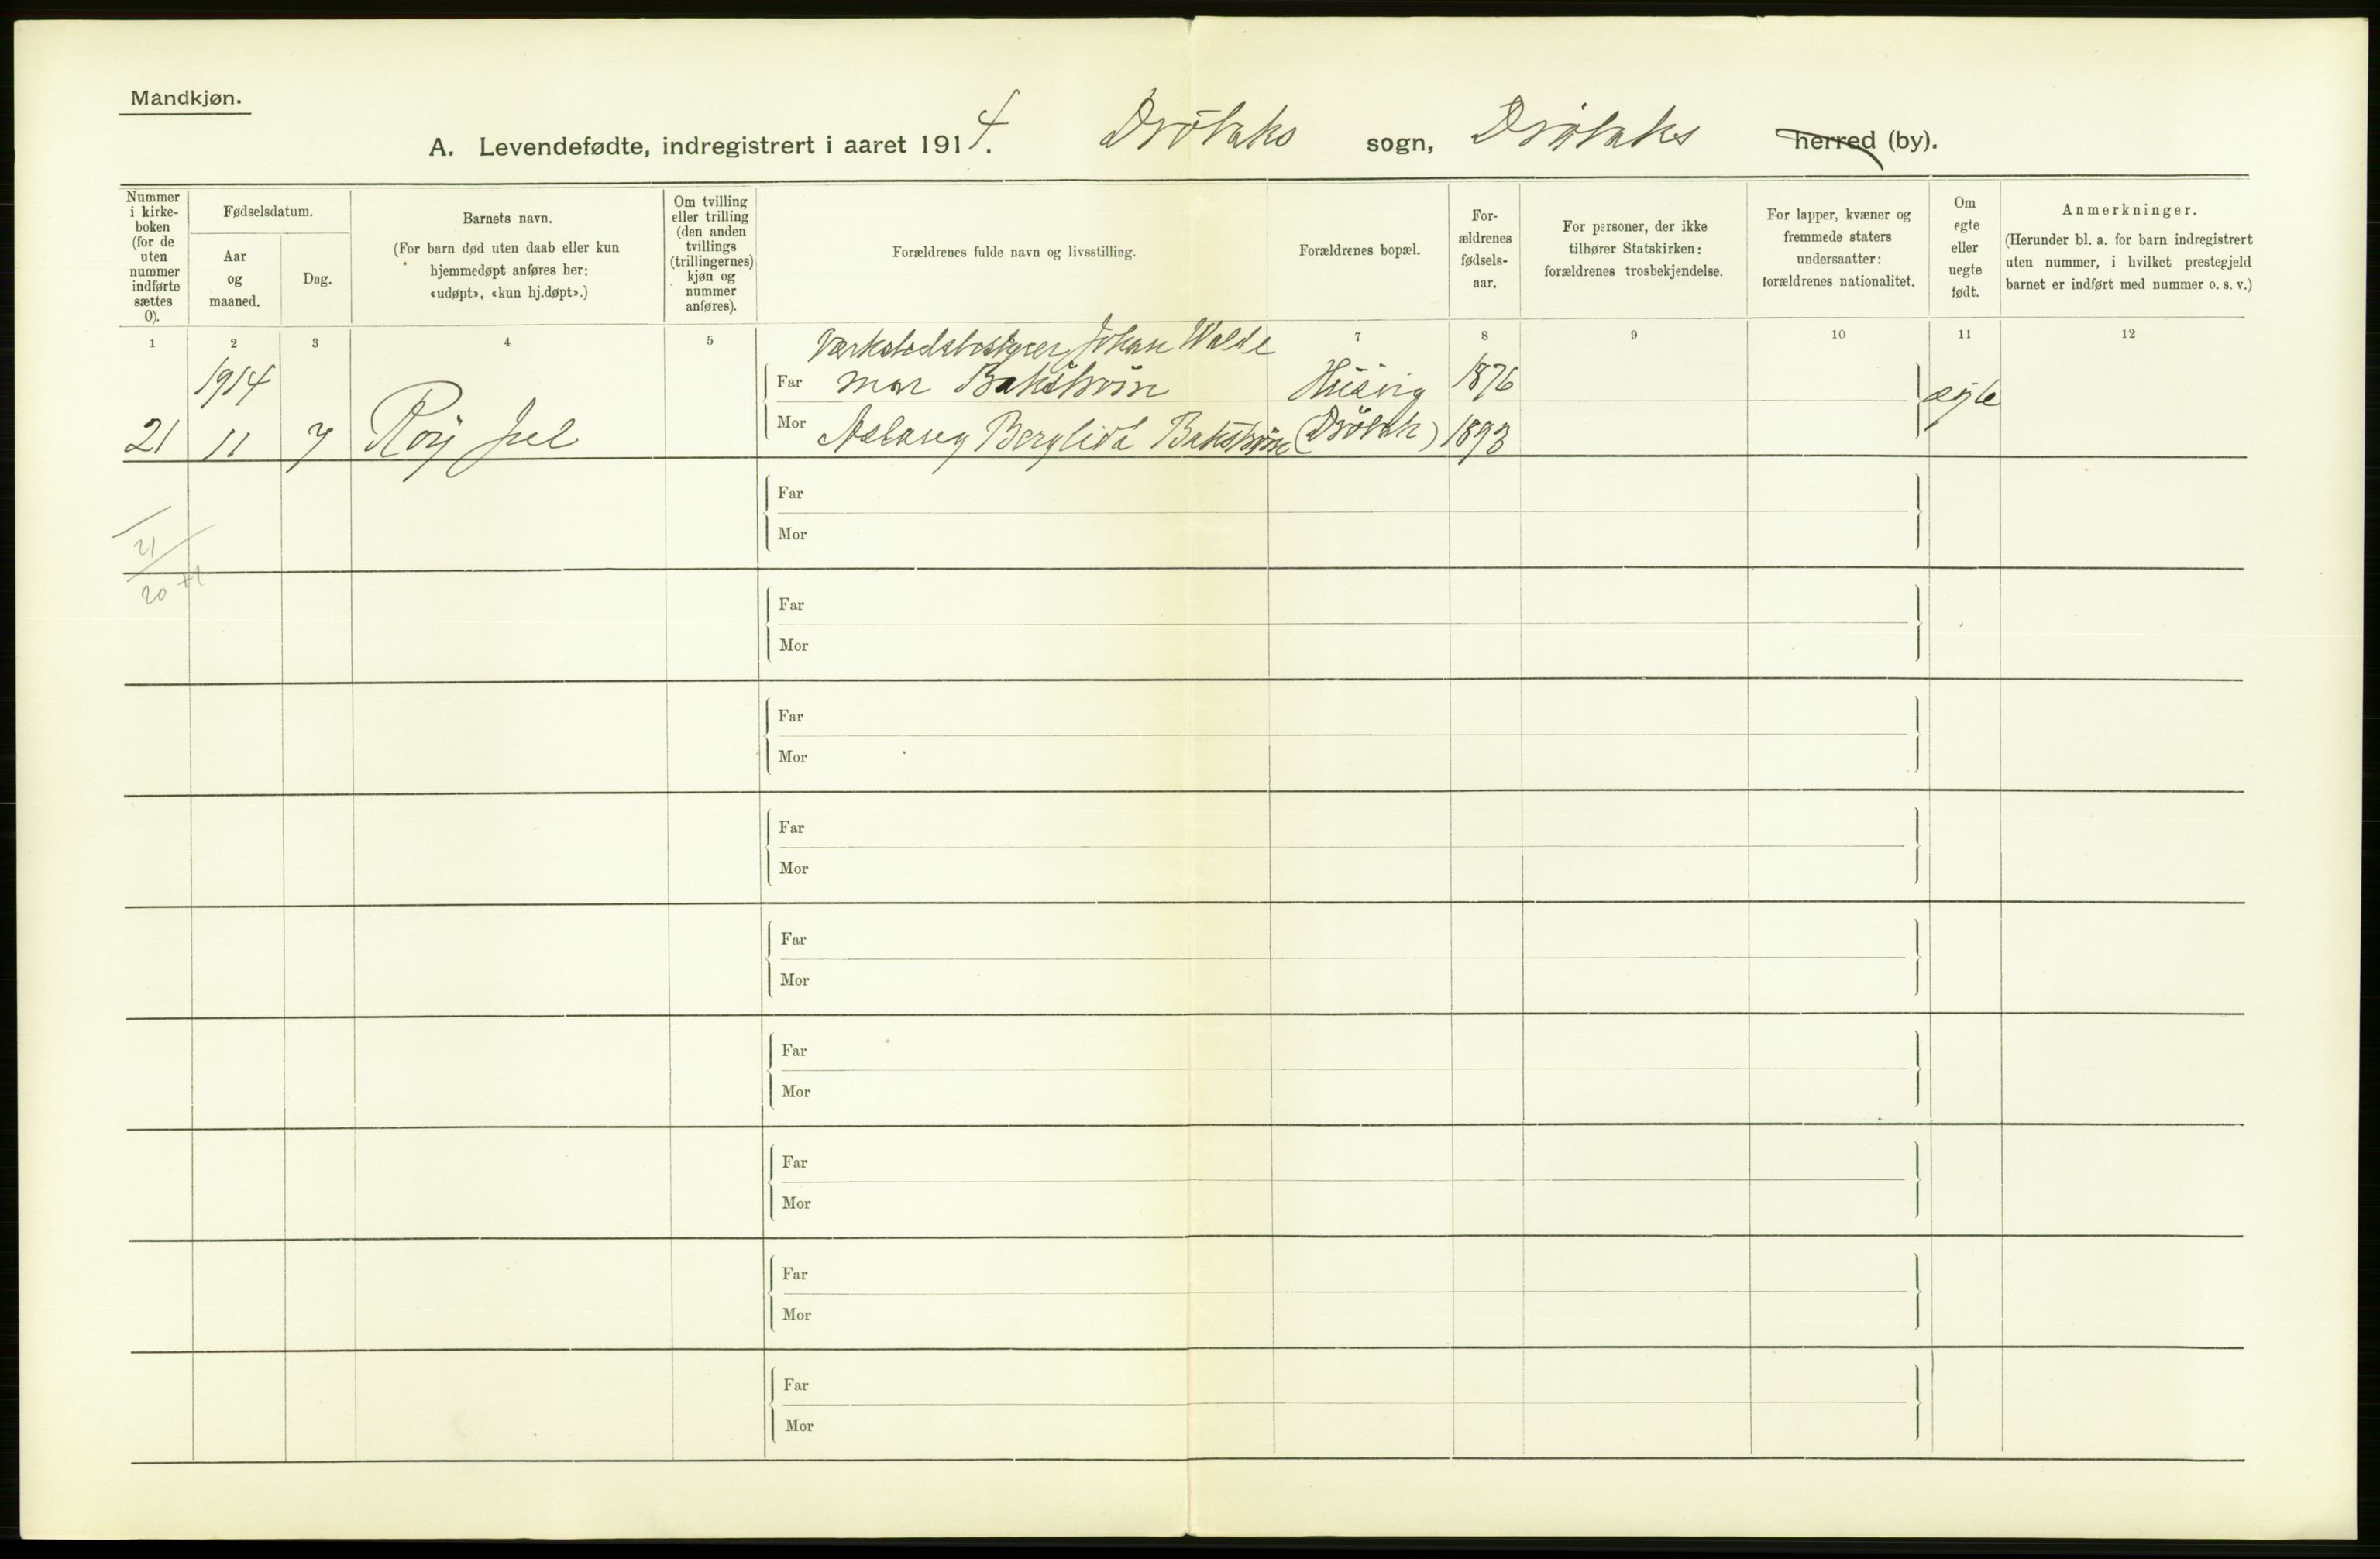 Mandkjøn.
A. Levendefødte, indregistrert i aaret 1914. Drøbaks sogn, Drøbaks herred (by).
Nummer i kirkeboken (for de uten nummer indførte sættes 0).
Fødselsdatum.
Aar og maaned.
Dag.
Barnets navn.
(For barn død uten daab eller kun
hjemmedøpt anføres her:
«udøpt», «kun hj.døpt».)
Om tvilling
eller trilling
(den anden
tvillings
(trillingernes)
kjøn og
nummer
anføres).
Forældrenes fulde navn og livsstilling.
Forældrenes bopæl.
For-
ældrenes
fødsels-
aar.
For personer, der ikke
tilhører Statskirken:
forældrenes trosbekjendelse.
For lapper, kvæner og
fremmede staters
undersaatter:
forældrenes nationalitet.
Om
egte
eller
uegte
født.
Anmerkninger.
(Herunder bl. a. for barn indregistrert
uten nummer, i hvilket prestegjeld
barnet er indført med nummer o. s. v.)
1 2 3 4 5 7 8 9 10 11 12
Værkstedsbestyrer Johan Walde
1914 Far mar Bakstrøm Husvig 1876 egte
21 11 7 Roy Juel Mor Aslaug Berglioth Bakstrøm (Drøbak) 1893
Far
Mor
21
20 +1
Far
Mor
Far
Mor
Far
Mor
Far
Mor
Far
Mor
Far
Mor
Far
Mor
Far
Mor